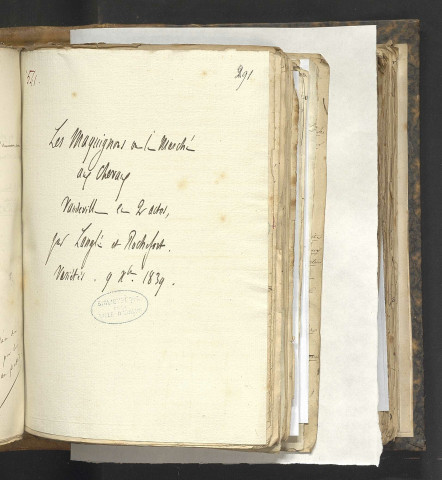 521.
291
Les Maquignons ou le Marché
aux Chevaux
Vaudeville en 2 actes,
par Langlé et Rochefort.
Variétés. 9 Xbre 1839.